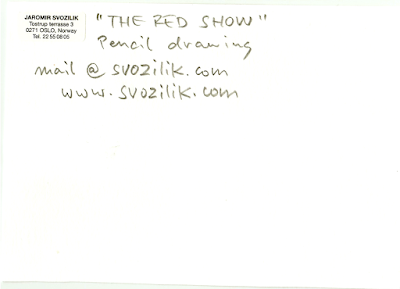 JAROMIR SVOZILIK
Tostrup terrasse 3
0271 OSLO, Norway
Tel. 22 55 08 05
"THE RED SHOW"
Pencil drawing
mail @ svozilik.com
www.svozilik.com